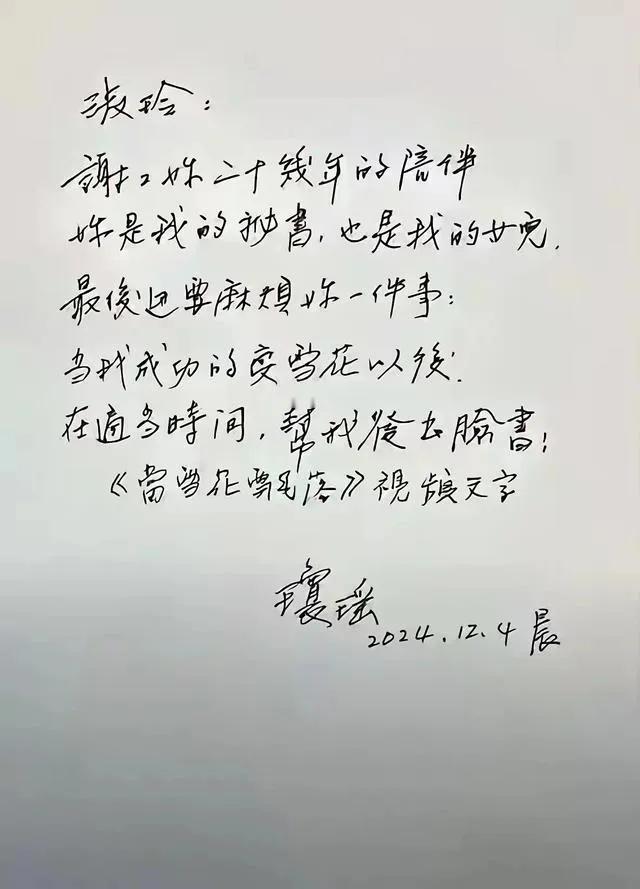 淑玲：
謝謝妳二十幾年的陪伴
妳是我的秘書，也是我的女兒.
最後还要麻煩妳一件事：
当我成功的变雪花以後.
在適当時间，幫我發去臉書！
《當雪花飄落》視頻文字
瓊瑤
2024.12.4晨